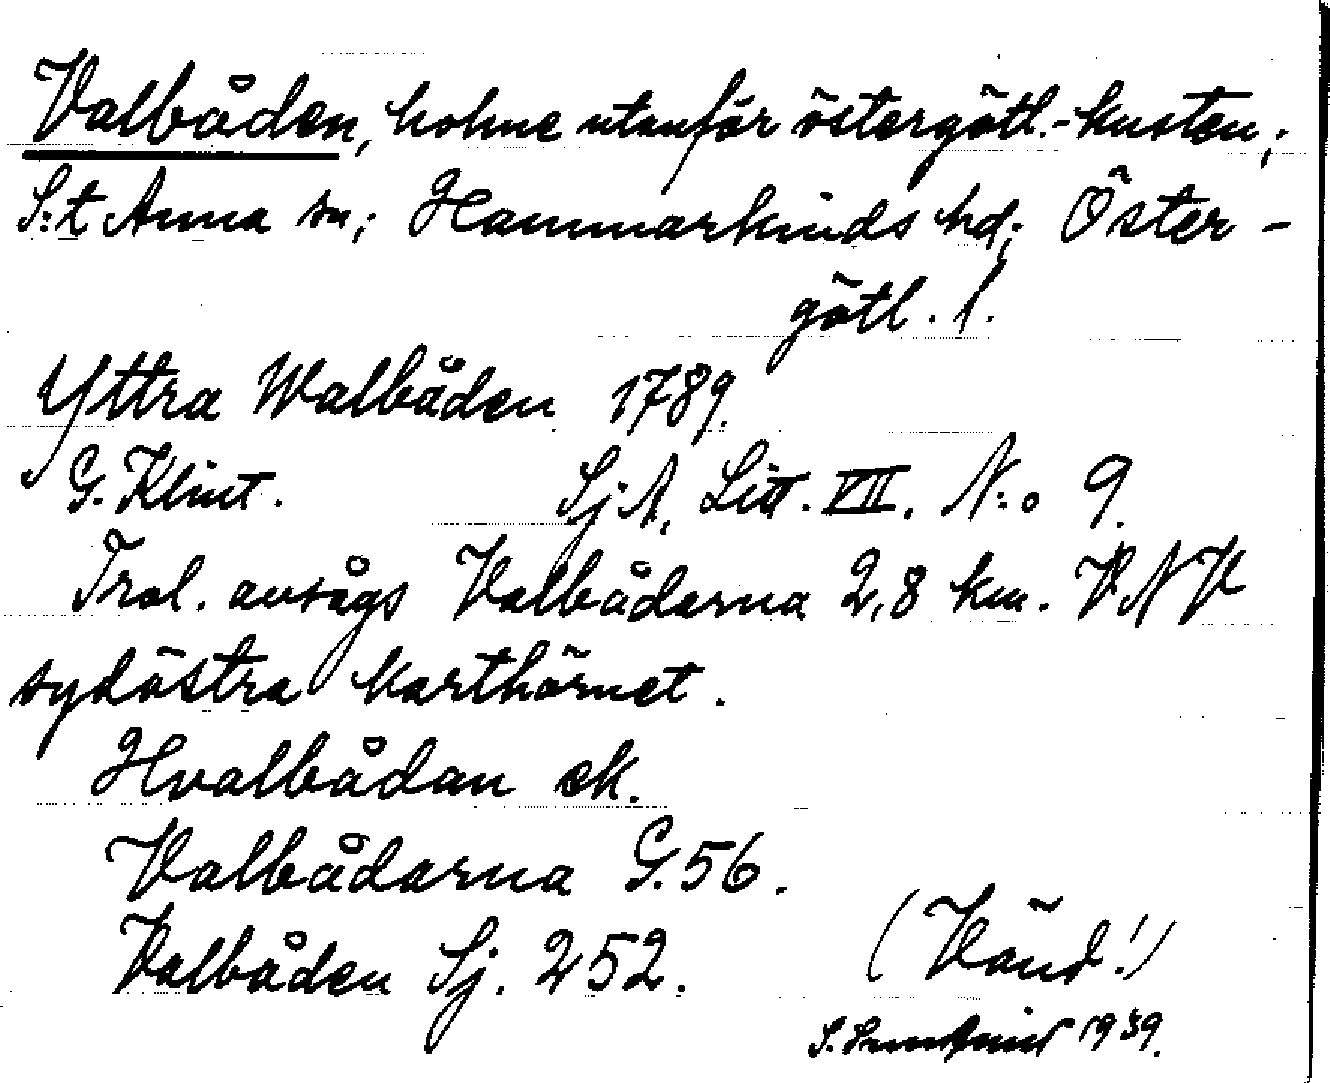 Valbåden, holme utanför östergötl.-kusten;
S:t Anna sn; Hammarkinds hd; Öster-
götl. l.
Yttra Walbåden 1789.
G. Klint. Sj.A. Litt. VII. N:o 9.
Trol. avsågs Valbådarna 2,8 km. VNV
sydöstra karthörnet.
Hvalbådan ek.
Valbådarna G. 56.
Valbåden Sj. 252.
(Vänd!)
S. 1939.